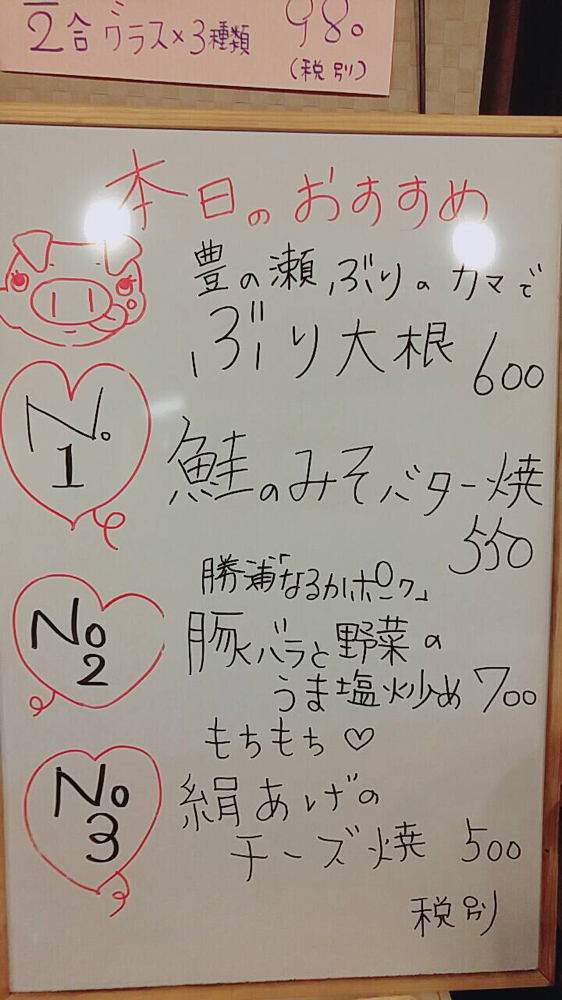 2合グラス×3種類 980
(税別)
本日のおすすめ
豊の瀬ぶりのカマで
ぶり大根 600
No.1
鮭のみそバター焼
550
勝浦「なるかポーク」
No2
豚バラと野菜の
うま塩炒め 700
もちもち♡
No3
絹あげの
チーズ焼 500
税別